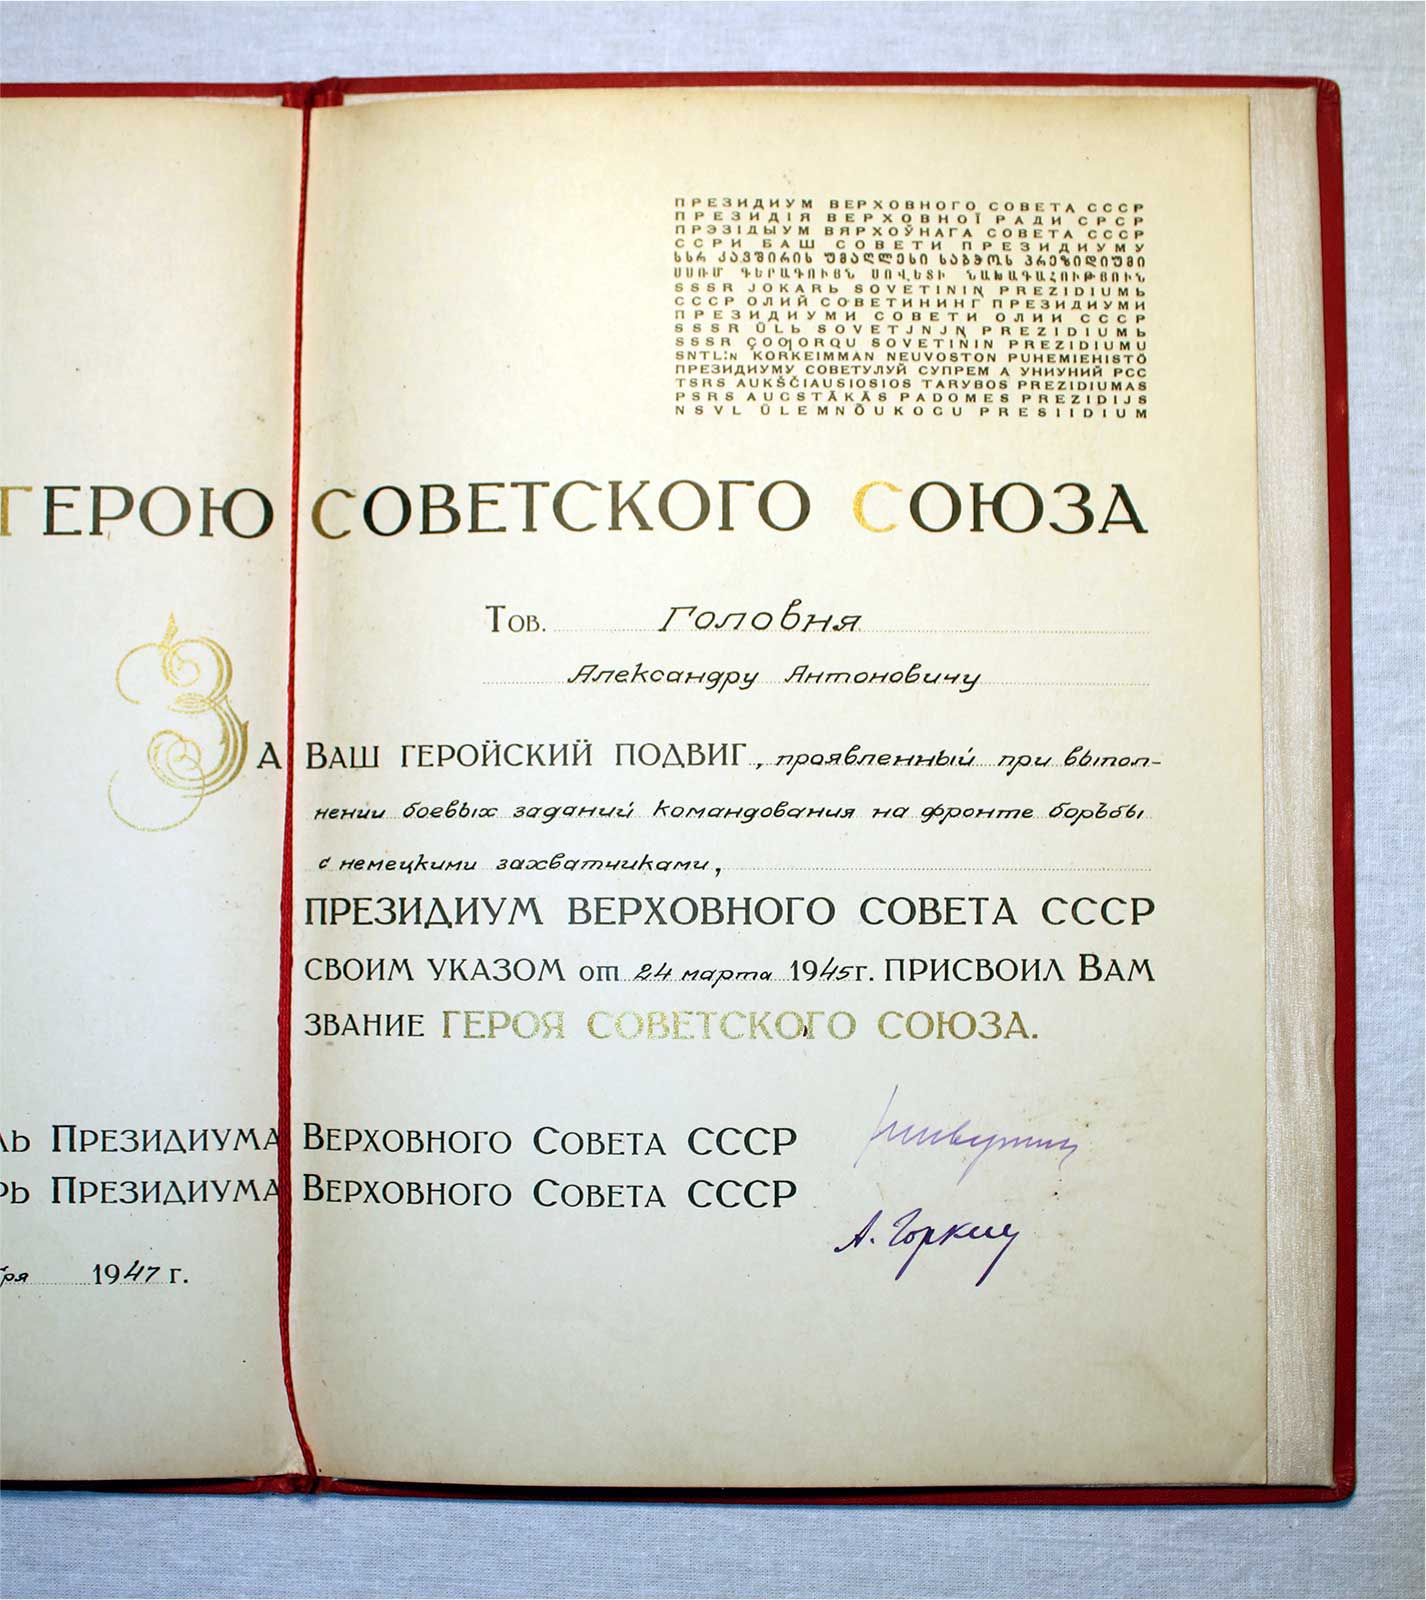 ПРЕЗИДИУМ ВЕРХОВНОГО СОВЕТА СССР
ПРЕЗИДІЯ ВЕРХОВНОЇ РАДИ СРСР
ПРЭЗІДЫУМ ВЯРХОЎНАГА СОВЕТА СССР
ССРИ БАШ СОВЕТИ ПРЕЗИДИУМУ
ᲡᲡᲠ ᲙᲐᲕᲨᲘᲠᲘᲡ ᲣᲛᲐᲦᲚᲔᲡᲘ ᲡᲐᲑᲭᲝᲡ ᲞᲠᲔᲖᲘᲓᲘᲣᲛᲘ
ՍՍՌՄ ԳԵՐԱԳՈՒՅՆ ՍՈՎԵՏԻ ՆԱԽԱԳԱՀՈՒԹՅՈՒՆ
SSSR JOKARЬ SOVETININ PREZIDIUMЬ
СССР ОЛИЙ СОВЕТИНИНГ ПРЕЗИДИУМИ
ПРЕЗИДИУМИ СОВЕТИ ОЛИИ СССР
SSSR ÜLЬ SOVETJNJꞐ PREZIDIUMЬ
SSSR ÇOƢORQU SOVETININ PREZIDIUMU
SNTL:n KORKEIMMAN NEUVOSTON PUHEMIEHISTÖ
ПРЕЗИДИУМУ СОВЕТУЛУЙ СУПРЕМ А УНИУНИЙ РСС
TSRS AUKŠČIAUSIOSIOS TARYBOS PREZIDIUMAS
PSRS AUGSTĀKĀS PADOMES PREZIDIJS
NSVL ÜLEMNÕUKOGU PRESIIDIUM
ГЕРОЮ СОВЕТСКОГО СОЮЗА
Тов. Головня
Александру Антоновичу
За Ваш геройский подвиг, проявленный при выпол-
нении боевых заданий командования на фронте борьбы
с немецкими захватчиками,
ПРЕЗИДИУМ ВЕРХОВНОГО СОВЕТА СССР
СВОИМ УКАЗОМ от 24 марта 1945 г. ПРИСВОИЛ ВАМ
ЗВАНИЕ ГЕРОЯ СОВЕТСКОГО СОЮЗА.
ль Президиума Верховного Совета СССР
рь Президиума Верховного Совета СССР
А. Горкин
бря 1947 г.